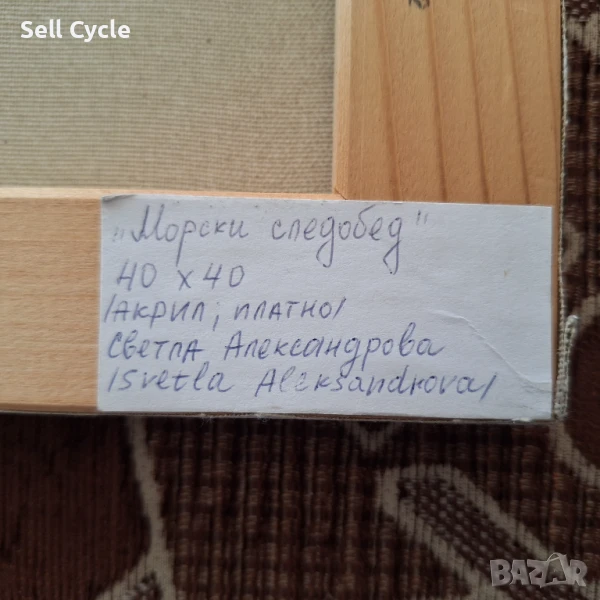 Sell Cycle
„Морски следобед"
40 x 40
/АКРИЛ; ПЛАТНО/
Светла Александрова
/Svetla Aleksandrova/
BAZAR